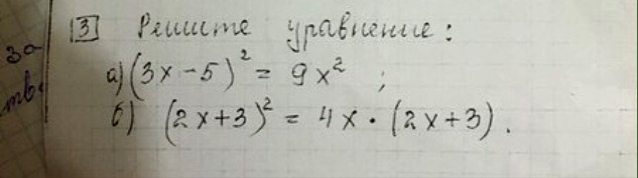 3 Решите уравнение:
а) (3x-5)² = 9x² ;
б) (2x+3)² = 4x · (2x+3).